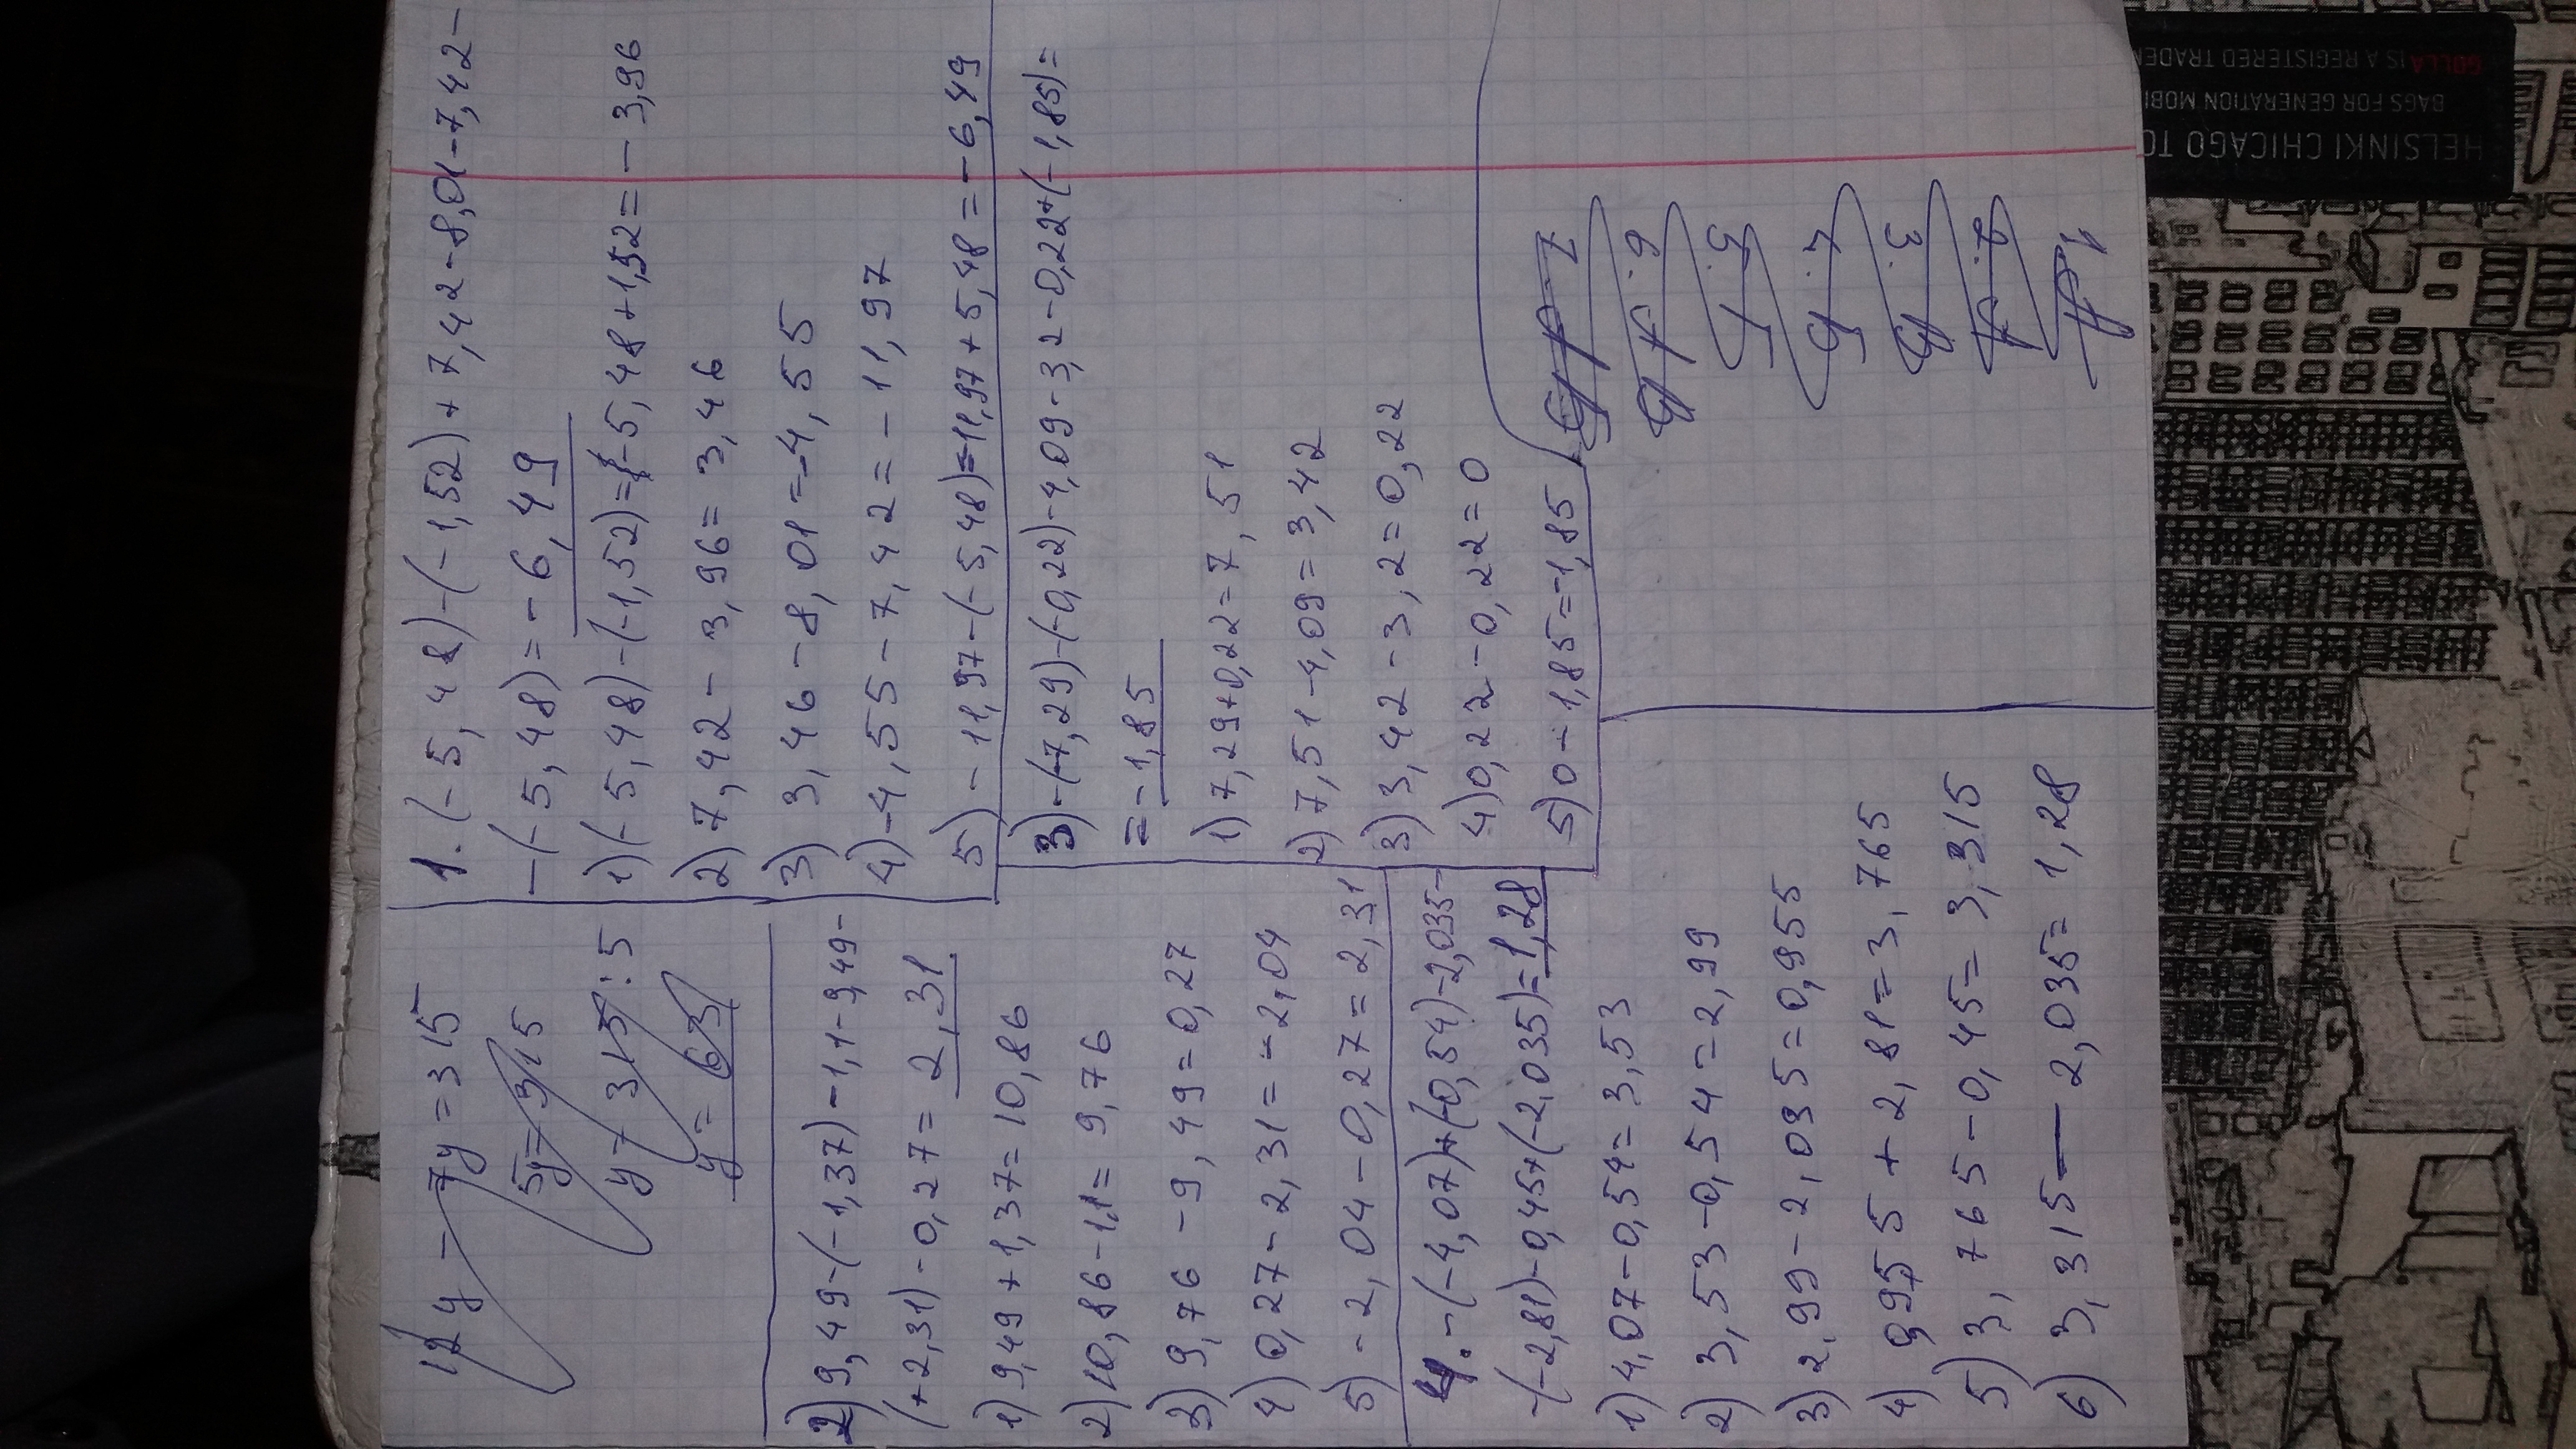 12y - 7y = 315
5y = 315
y = 315 : 5
y = 63
1. (-5,48)-(-1,52)+7,42-8,01-7,42-
-(-5,48)=-6,49
1)(-5,48)-(-1,52)=-5,48+1,52=-3,96
2)7,42-3,96=3,46
3) 3,46-8,01=-4,55
4)-4,55-7,42=-11,97
5)-11,97-(-5,48)=-11,97+5,48=-6,49
2)9,49-(-1,37)-1,1-9,49-
(+2,31)-0,27=2,31
1)9,49+1,37=10,86
2)10,86-1,1=9,76
3)9,76-9,49=0,27
4)0,27-2,31=-2,04
5)-2,04-0,27=2,31
3)-(-7,29)-(-0,22)-4,09-3,2-0,22+(-1,85)=
=-1,85
1)7,29+0,22=7,51
2)7,51-4,09=3,42
3)3,42-3,2=0,22
4)0,22-0,22=0
5)0-1,85=-1,85
4.-(-4,07)+(-0,54)-2,035-
-(-2,81)-0,45+(-2,035)=1,28
1)4,07-0,54=3,53
2) 3,53-0,54=2,99
3)2,99-2,035=0,955
4) 0,955+2,81=3,765
5)3,765-0,45=3,315
6) 3,315-2,035=1,28
HELSINKI CHICAGO TO
BAGS FOR GENERATION MOBI
GOLLA IS A REGISTERED TRADEM